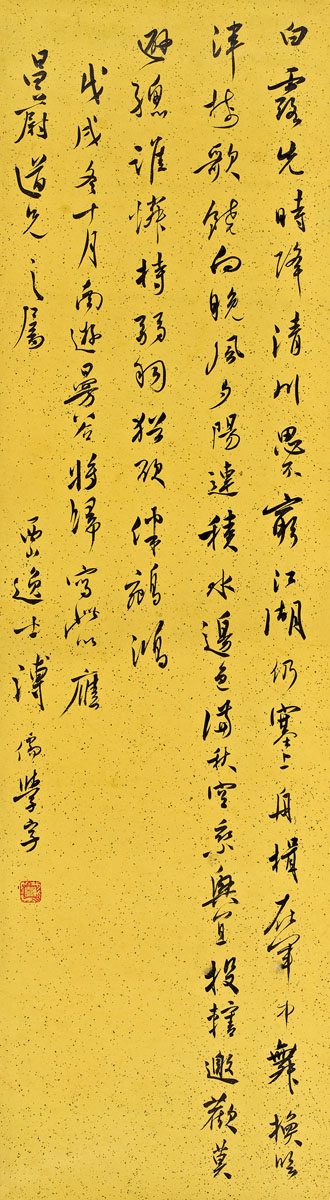 白露先時降清川思不窮江湖仍塞上舟楫在軍中舞換臨
津樹歌饒向晚風夕陽連積水邊色滿秋空乘興宜投轄邀歡莫
避驄誰憐持弱羽猶欲伴鵷鴻
戊戌冬十月南遊曼谷將歸寫此以應
蔚道兄之屬
西山逸士溥儒學字